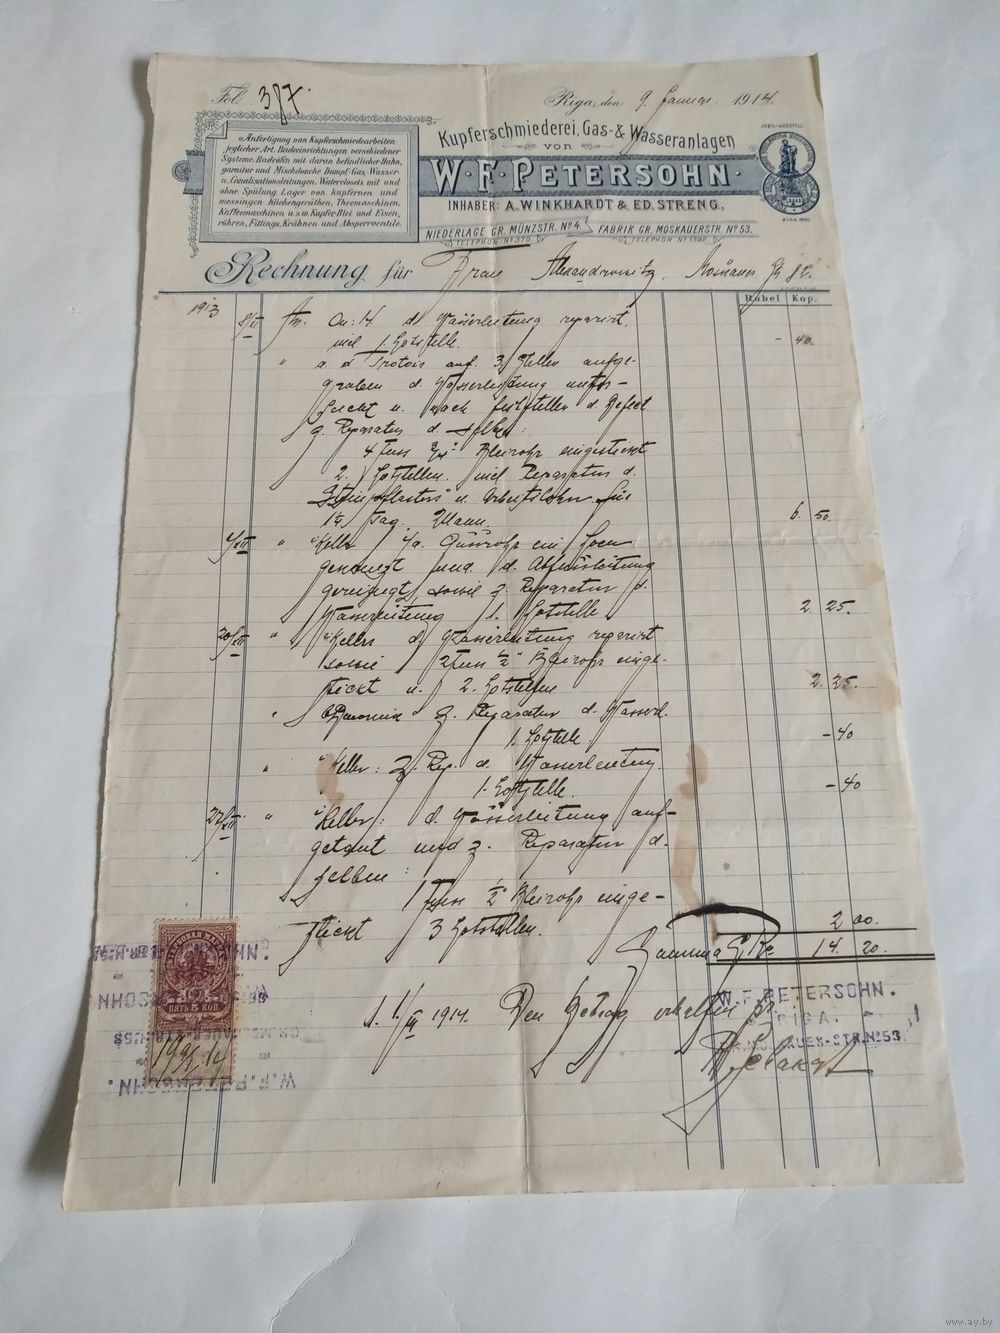 Fol. 387.
Riga, den 9. Januar 1914.
Anfertigung von Kupferschmiedearbeiten
jeglicher Art. Badeeinrichtungen verschiedener
Systeme. Badeöfen mit daran befindlicher Hahn-
garnitur und Mischdouche Dampf-Gas-Wasser-
u. Canalisationsleitungen. Waterclosets mit und
ohne Spülung. Lager von kupfernen und
messingen Küchengeräthen, Theemaschinen,
Kaffeemaschinen u.s.w. Kupfer-Blei und Eisen-
röhren, Fittings, Krähnen und Absperventile.
Kupferschmiederei, Gas- & Wasseranlagen
von
W. F. PETERSOHN.
INHABER: A. WINKHARDT & ED. STRENG.
NIEDERLAGE GR. MÜNZSTR. No 4. FABRIK GR. MOSKAUERSTR. No 53.
TELEPHON No 370. TELEPHON No 1392.
JUBIL.-AUSSTELL.
RIGA 1901.
Rechnung für Frau Alexandrowitz, Moskauer 82.
Rubel Kop.
1913
8/XI Am. On: 14. d. Wasserleitung reparirt,
incl 1 Lotstelle. - 40.
" a. d Trotois auf 3 Stellen aufge-
graben d. Wasserleitung unter-
sucht u. nach feststellen d. Defect
z. Reparatur d. selben:
4 Fuss 3/4" Bleirohr eingestickt
2. Lotstellen incl Reparatur d.
Steinpflasters u. Arbeitslohn für
1½ Tag. Mann. 6. 50.
4/XII " Keller ein
gereinigt, sowie z. Reparatur d.
Wasserleitung 1. Lotstelle 2. 25.
20/XII " "Keller d Wasserleitung reparirt
sowie 2 Fuss ½" Bleirohr einge-
stickt u. 2. Lotstellen 2. 25.
" z. Reparatur d. Wasserl.
1. Lotstelle - 40
" "Keller: z. Rep. d. Wasserleitung.
1. Lotstelle. - 40
27/XII " "Keller: d. Wasserleitung auf-
getaut und z. Reparatur d.
selben:
1 Fuss ½" Bleirohr einge-
stickt 3 Lotstellen. 2 00.
Summa 14. 20.
1914. Den Betrag erhalten
W. F. PETERSOHN.
RIGA.
MOSKAUER-STR. No 53
ПЯТЬ 5 КОП
W. F. PETERSOHN.
www.ay.by